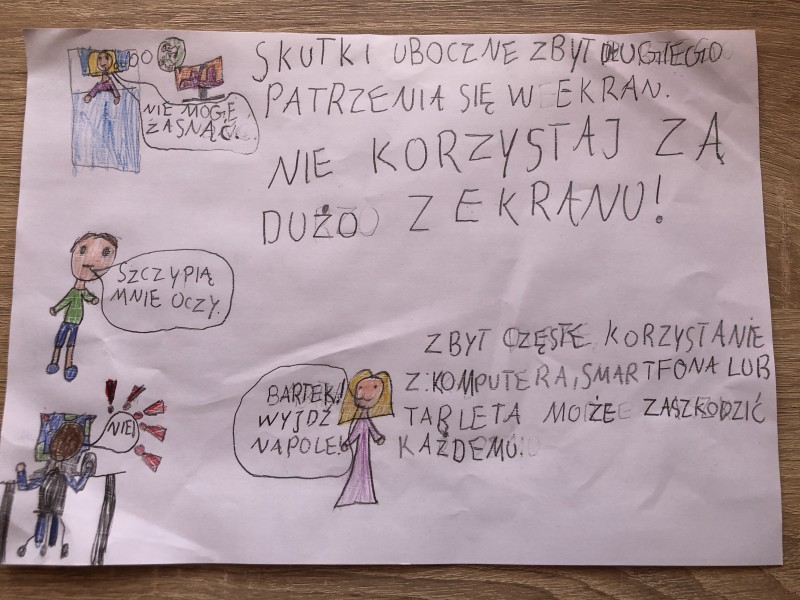 SKUTKI UBOCZNE ZBYT DŁUGIEGO
PATRZENIA SIĘ W EKRAN.
NIE KORZYSTAJ ZA
DUŻO Z EKRANU!
NIE MOGĘ
ZASNĄĆ.
SZCZYPIĄ
MNIE OCZY.
ZBYT CZĘSTE KORZYSTANIE
Z KOMPUTERA, SMARTFONA LUB
TABLETA MOŻE ZASZKODZIĆ
KAŻDEMU.
BARTEK!
WYJDŹ
NA POLE!
NIE!